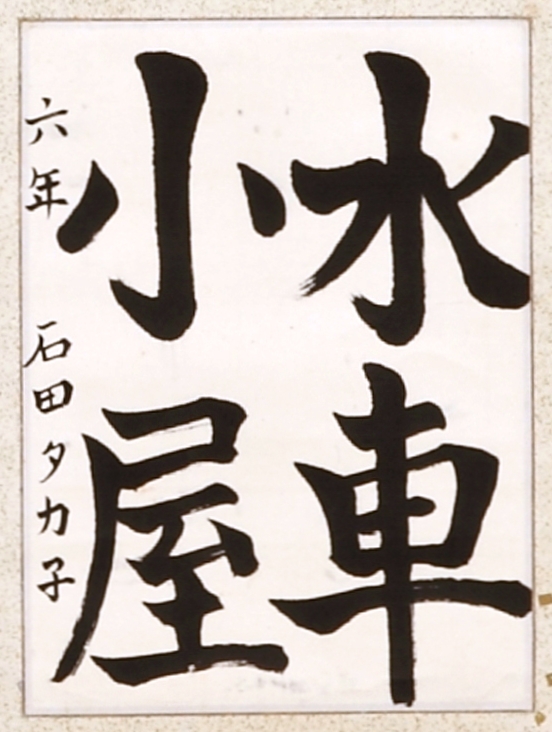 水車
小屋
六年 石田タカ子